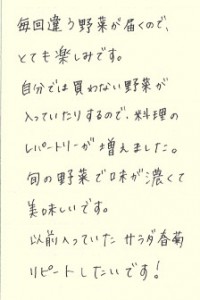 毎回違う野菜が届くので、
とても楽しみです。
自分では買わない野菜が
入っていたりするので、料理の
レパートリーが増えました。
旬の野菜で味が濃くて
美味しいです。
以前入っていた サラダ春菊
リピートしたいです!